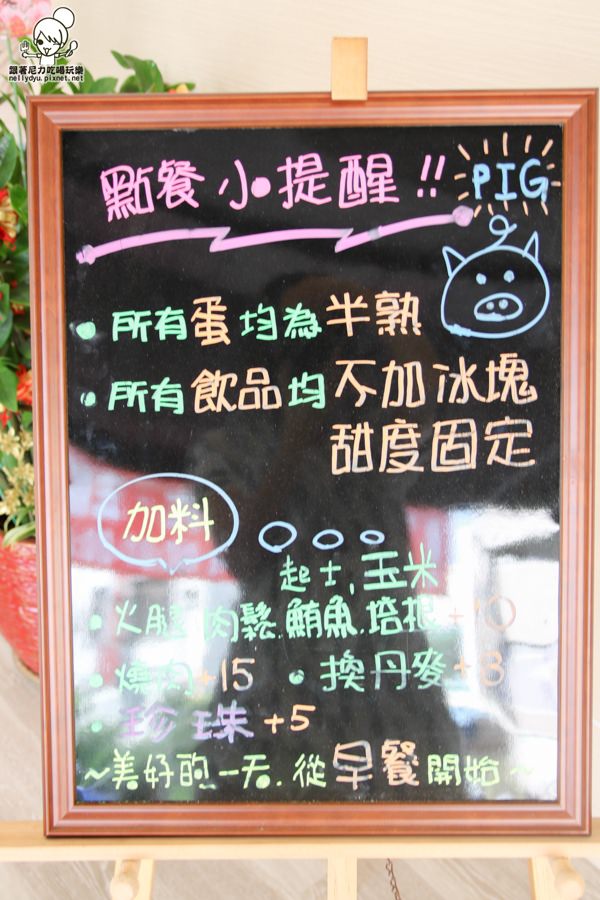 跟著尼力吃喝玩樂
nellydyu.pixnet.net
點餐小提醒!!
PIG
所有蛋均為半熟
所有飲品均不加冰塊
甜度固定
加料
起士,玉米
火腿.肉鬆.鮪魚.培根+10
燒肉+15
換丹麥+8
珍珠+5
~美好的一天.從早餐開始~